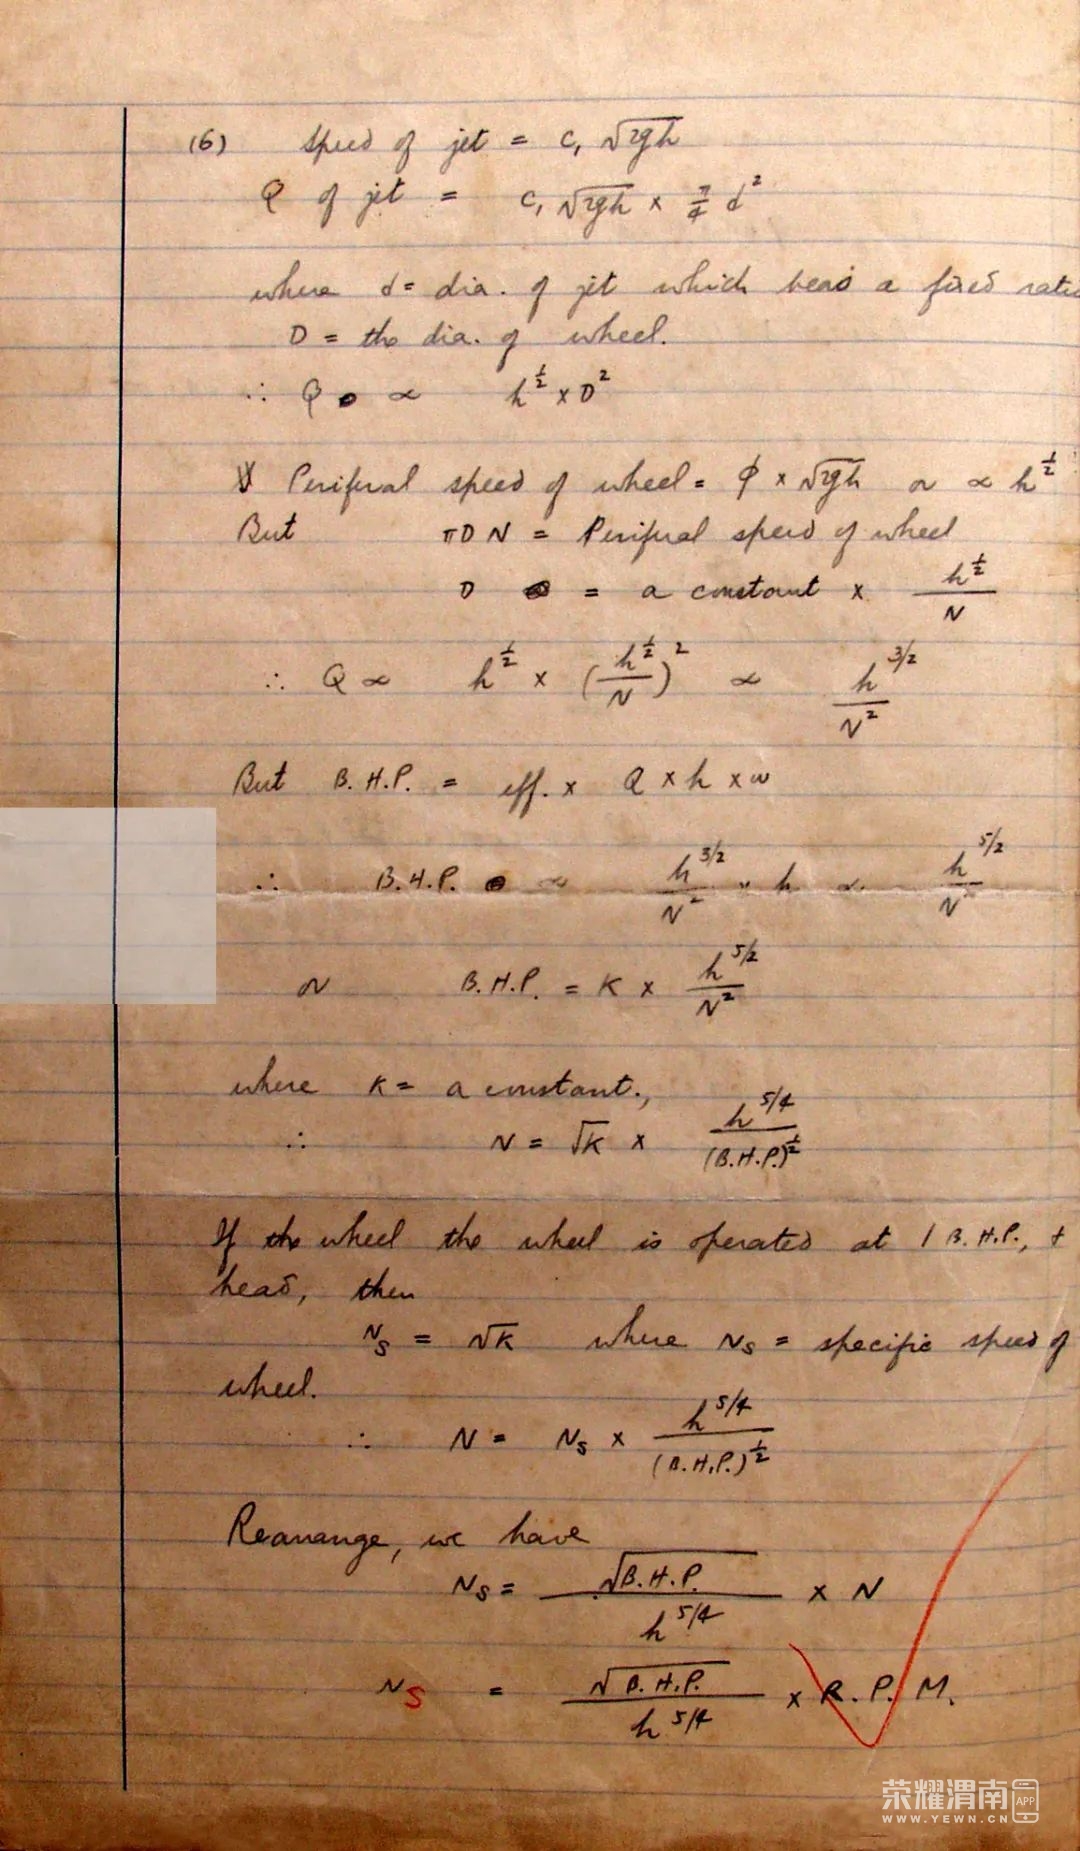 (6) Speed of jet = C₁ √2gh
Q of jet = C₁ √2gh × π/4 d²
where d = dia. of jet which bears a fixed ratio
D = the dia. of wheel.
∴ Q ∝ h^½ × D²
Periferal speed of wheel = φ × √2gh or ∝ h^½
But πDN = Periferal speed of wheel
D = a constant × h^½/N
∴ Q ∝ h^½ × (h^½/N)² ∝ h^3/2/N²
But B.H.P. = eff. × Q × h × w
∴ B.H.P. ∝ h^3/2/N² × h ∝ h^5/2/N²
or B.H.P. = K × h^5/2/N²
where K = a constant.,
∴ N = √K × h^5/4/(B.H.P.)^½
If the wheel the wheel is operated at 1 B.H.P., +
head, then
Ns = √K where Ns = specific speed of
wheel.
∴ N = Ns × h^5/4/(B.H.P.)^½
Rearange, we have
Ns = √B.H.P./h^5/4 × N
Ns = √B.H.P./h^5/4 × R.P.M.
荣耀渭南APP
WWW.YEWN.CN